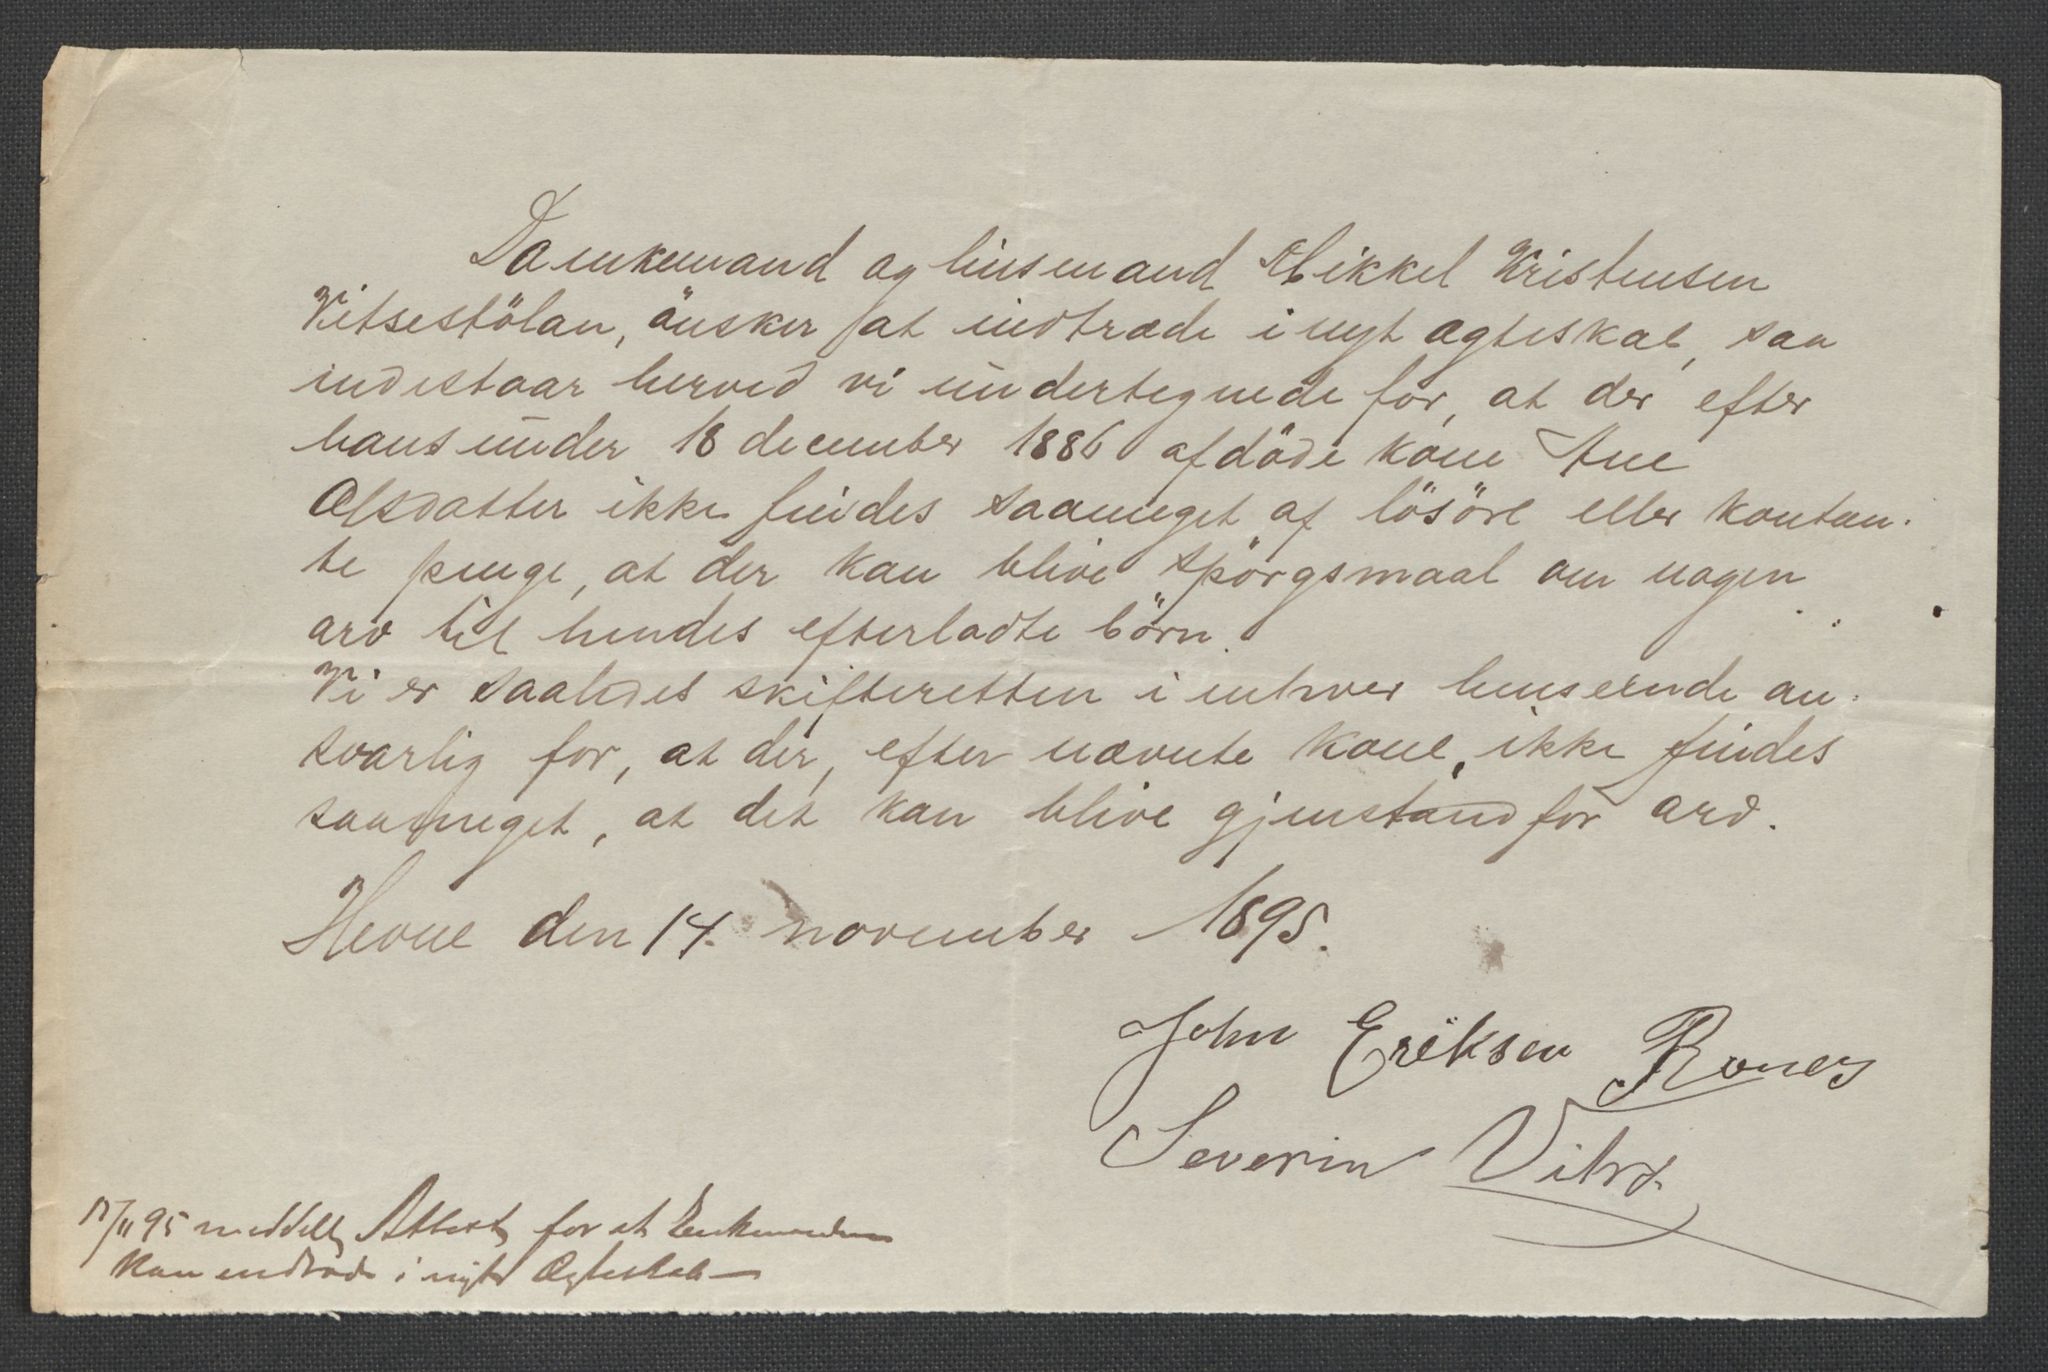 Da enkemand og husmand Mikkel Kristensen
Vitsestölan, önsker at indtræde i nyt ægteskab, saa
indestaar herved vi undertegnede for, at der efter
hans under 18 december 1886 afdöde kone Ane
Olsdatter ikke findes saameget af lösöre eller kontan-
te penge, at der kan blive spörgsmaal om nogen
arv til hendes efterladte börn.
Vi er saaledes skifteretten i enhver henseende an-
svarlig for, at der, efter nævnte kone, ikke findes
saameget, at det kan blive gjenstand for arv.
Hevne den 14. november 1895.
John Eriksen
Severin
95 meddelt Attest for at Enkemanden
kan indtræde i nyt Ægteskab